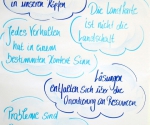 in unseren Köpfen
Die Landkarte
ist nicht die
Landschaft
Jedes Verhalten
hat in einem
bestimmten Kontext Sinn
Lösungen
entfalten sich über die
Orientierung an Resourcen
Probleme sind